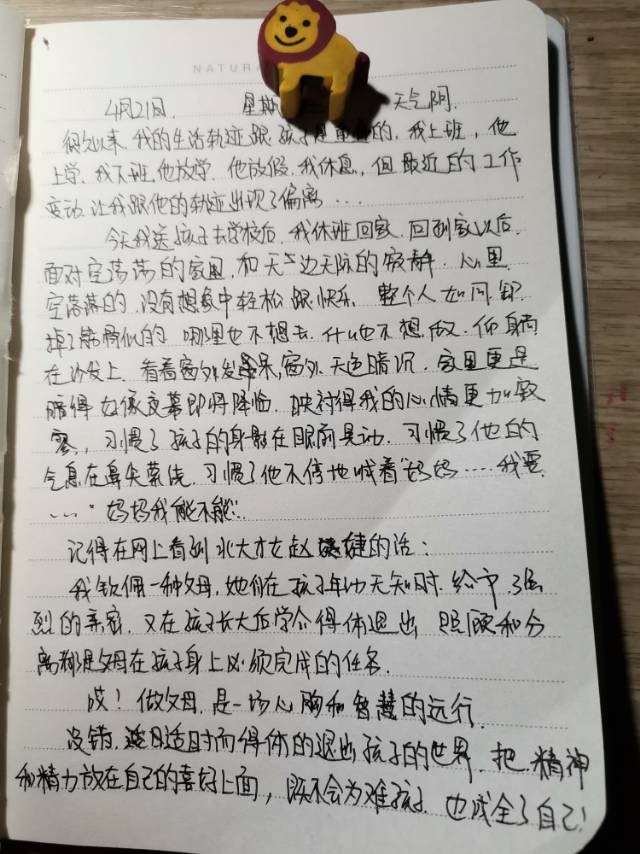 NATUR
4月21日. 星期 天气阴.
很久以来,我的生活轨迹跟孩子是重的,我上班,他
上学,我下班,他放学,他放假,我休息,但最近的工作
变动,让我跟他的轨迹出现了偏离...
今天我送孩子去学校后,我休班回家,回到家以后,
面对空荡荡的家里,和无边无际的寂静,心里
空落落的,没有想象中轻松跟快乐 整个人如同卸
掉了骨似的 哪里也不想去,什么也不想做,仰躺
在沙发上,看着窗外发呆,窗外天色暗沉,家里更是
暗得好像夜幕即将降临,映衬得我的心情更加寂
寞,习惯了孩子的身影在眼前晃动,习惯了他的
气息在鼻尖萦绕,习惯了他不停地喊着"妈妈....我要
....""妈妈我能不能"..
记得在网上看到北大才女赵婕的话:
我钦佩一种父母,她们在孩子年幼无知时,给予强
烈的亲密,又在孩子长大后学会得体退出 照顾和分
离都是父母在孩子身上必须完成的任务.
哎!做父母,是一场心胸和智慧的远行.
没错,适时而得体的退出孩子的世界,把精神
和精力放在自己的喜好上面,既不会为难孩子,也成全了自己!